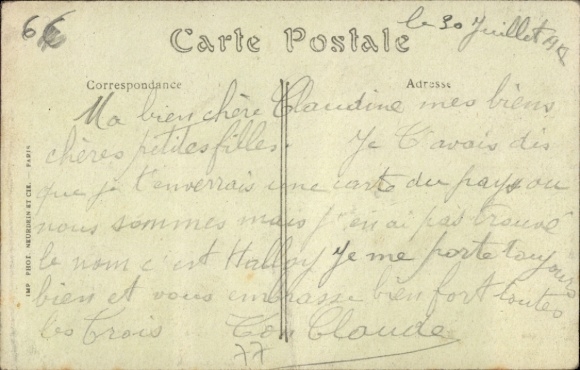 66
le 30 Juillet 191
Carte Postale
Correspondance
Adresse
Ma bien chère Claudine mes biens
chères petites filles. Je t'avais dis
que je t'enverrais une carte du pays ou
nous sommes mais j'en ai pas trouvé
le nom c'est Halloy Je me porte toujours
bien et vous embrasse bien fort toutes
les trois Ton Claude
77
IMP. PHOT. NEURDEIN ET CIE. - PARIS